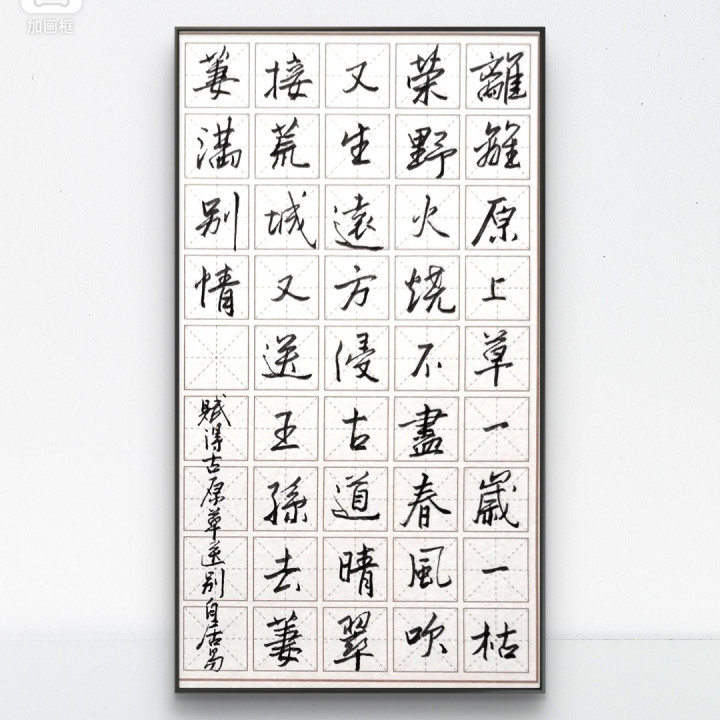 加画框
離離原上草一歲一枯
榮野火燒不盡春風吹
又生遠方侵古道晴翠
接荒城又送王孫去萋
萋滿別情
賦得古原草送別白居易